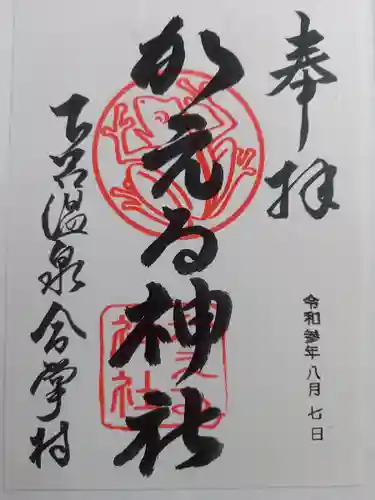 奉拝
令和参年八月七日
かえる神社
下呂温泉合掌村